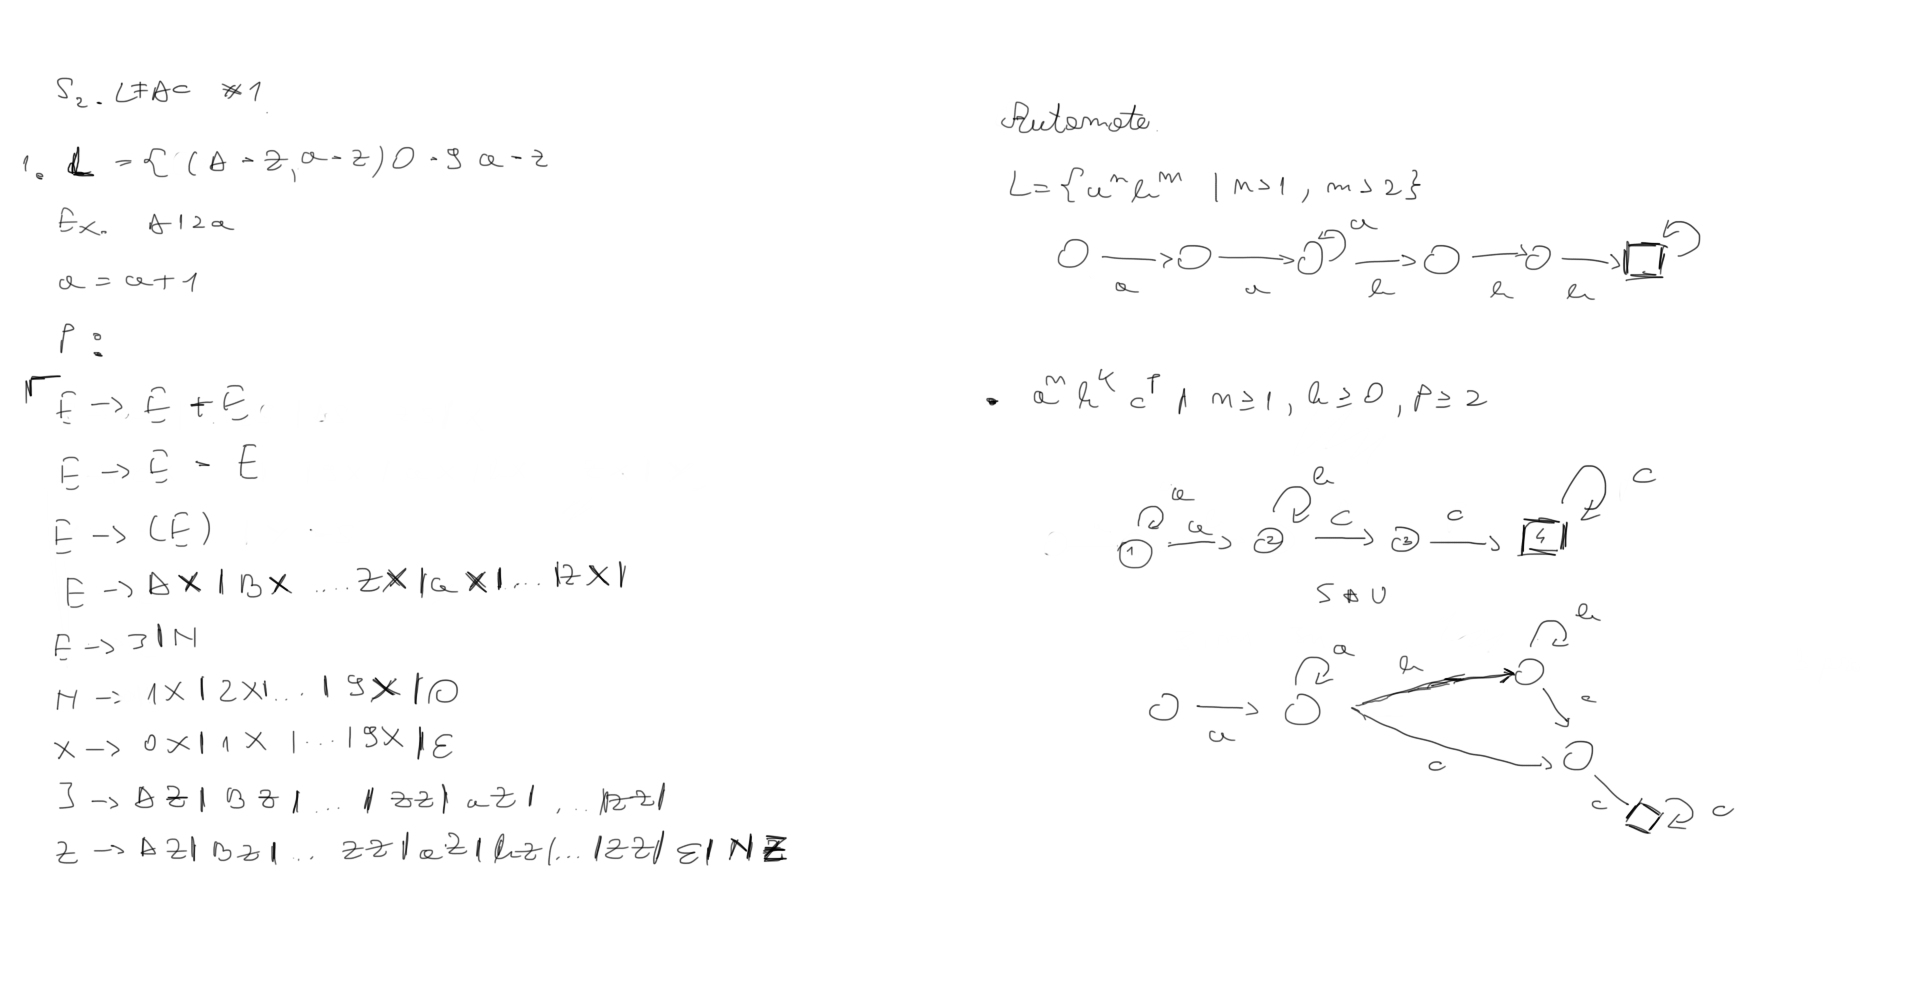 S₂. LFAC *1
1. L = { (A - Z, a - z) 0 - 9 a - z
Ex. A12a
a = a + 1
P :
E → E + E
E → E - E
E → (E)
E → AX | BX .... ZX | aX | ... | zX |
E → I | N
N → 1X | 2X | ... | 9X | 0
X → 0X | 1X | ... | 9X | ε
I → AZ | BZ | ... | ZZ | aZ | ... | zZ |
Z → AZ | BZ | ... ZZ | aZ | bZ | ... | zZ | ε | NZ
Automate
L = { aⁿ bᵐ | n > 1, m > 2 }
a
a a b b b
• aⁿ bᵏ cᵖ | n ≥ 1, k ≥ 0, p ≥ 2
a b c
a c c
1 2 3 4
SAU
b
a b
a c
c
c c